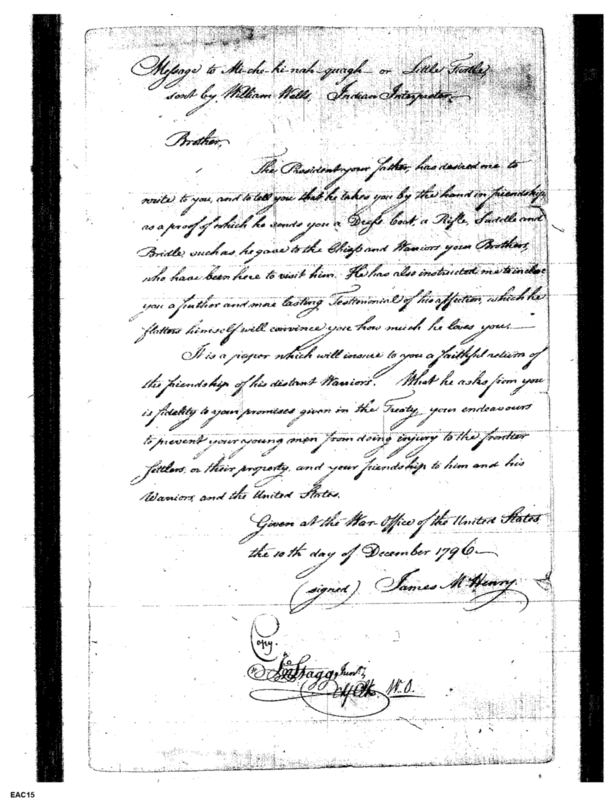 Message to Me-che-ki-nah-quagh- or Little Turtle,
sent by William Wells, Indian Interpreter,
Brother,
The President your father, has desired me to
write to you, and to tell you that he takes you by the hand in friendship,
as a proof of which he sends you a Dress Coat, a Rifle, Saddle and
Bridle, such as, he gave to the Chiefs and Warriors your Brothers,
who have been here to visit him. He has also instructed me to inclose
you a further and more lasting Testimonial of his affection, which he
flatters himself will convince you how much he loves you.
It is a paper which will insure to you a faithful return of
the friendship of his distant Warriors. What he asks from you
is fidelity to your promises given in the Treaty, your endeavours
to prevent your young men from doing injury to the frontier
settlers, or their property, and your friendship to him and his
Warriors, and the United States.
Given at the War-Office of the United States,
the 10th day of December 1796.
(signed) James McHenry.
Copy.
Jno Stagg Junr.
Cy Clk. W.O.
EAC15